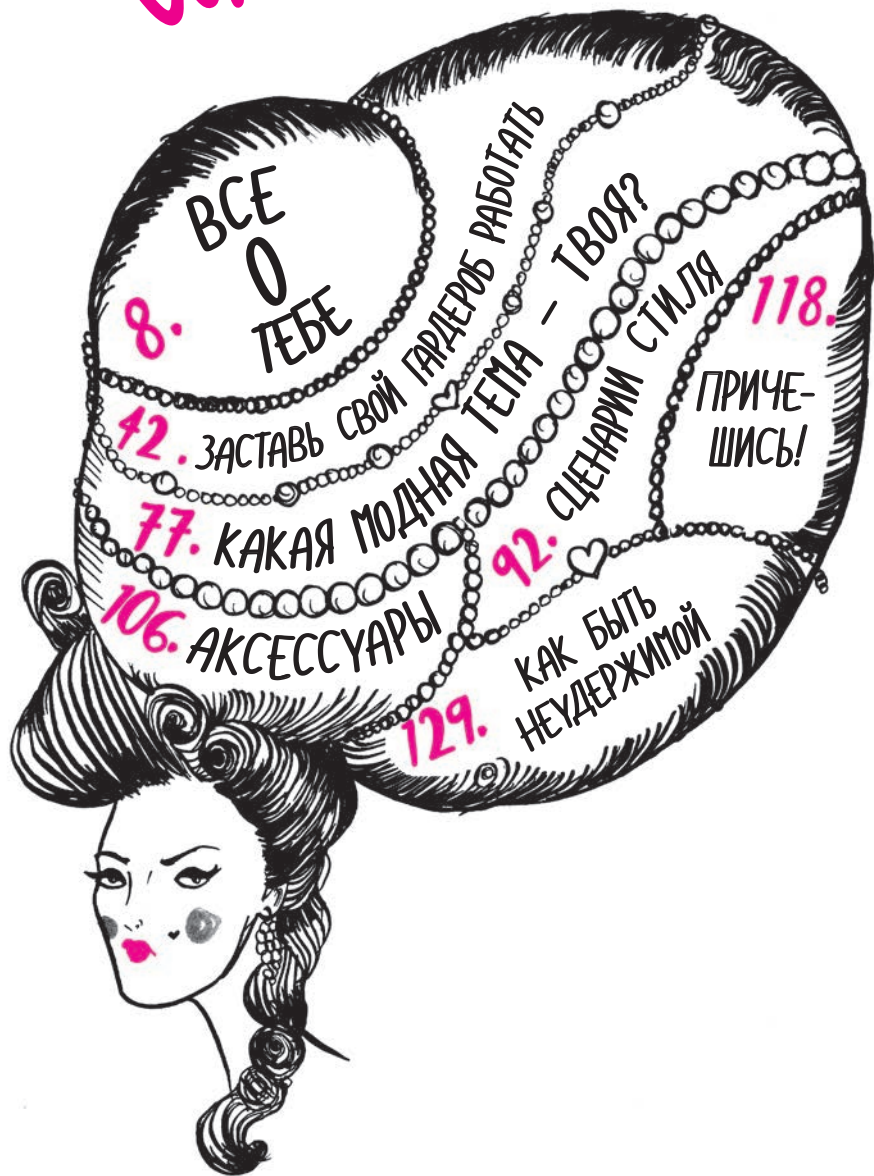 8.
ВСЕ
О
ТЕБЕ
42. ЗАСТАВЬ СВОЙ ГАРДЕРОБ РАБОТАТЬ
77. КАКАЯ МОДНАЯ ТЕМА – ТВОЯ?
92. СЦЕНАРИИ СТИЛЯ
106. АКСЕССУАРЫ
118.
ПРИЧЕ-
ШИСЬ!
129.
КАК БЫТЬ
НЕУДЕРЖИМОЙ